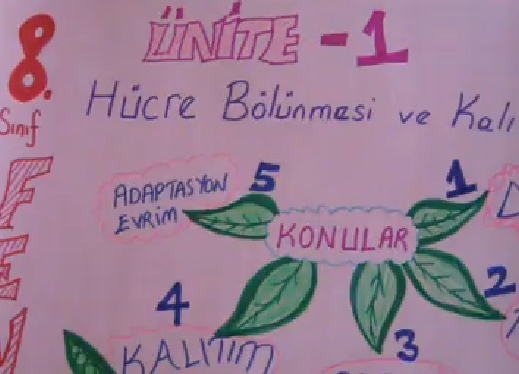 8.
Sınıf
F
E
ÜNİTE - 1
Hücre Bölünmesi ve
5
ADAPTASYON
EVRİM
1
KONULAR
2
4
KALITIM
3